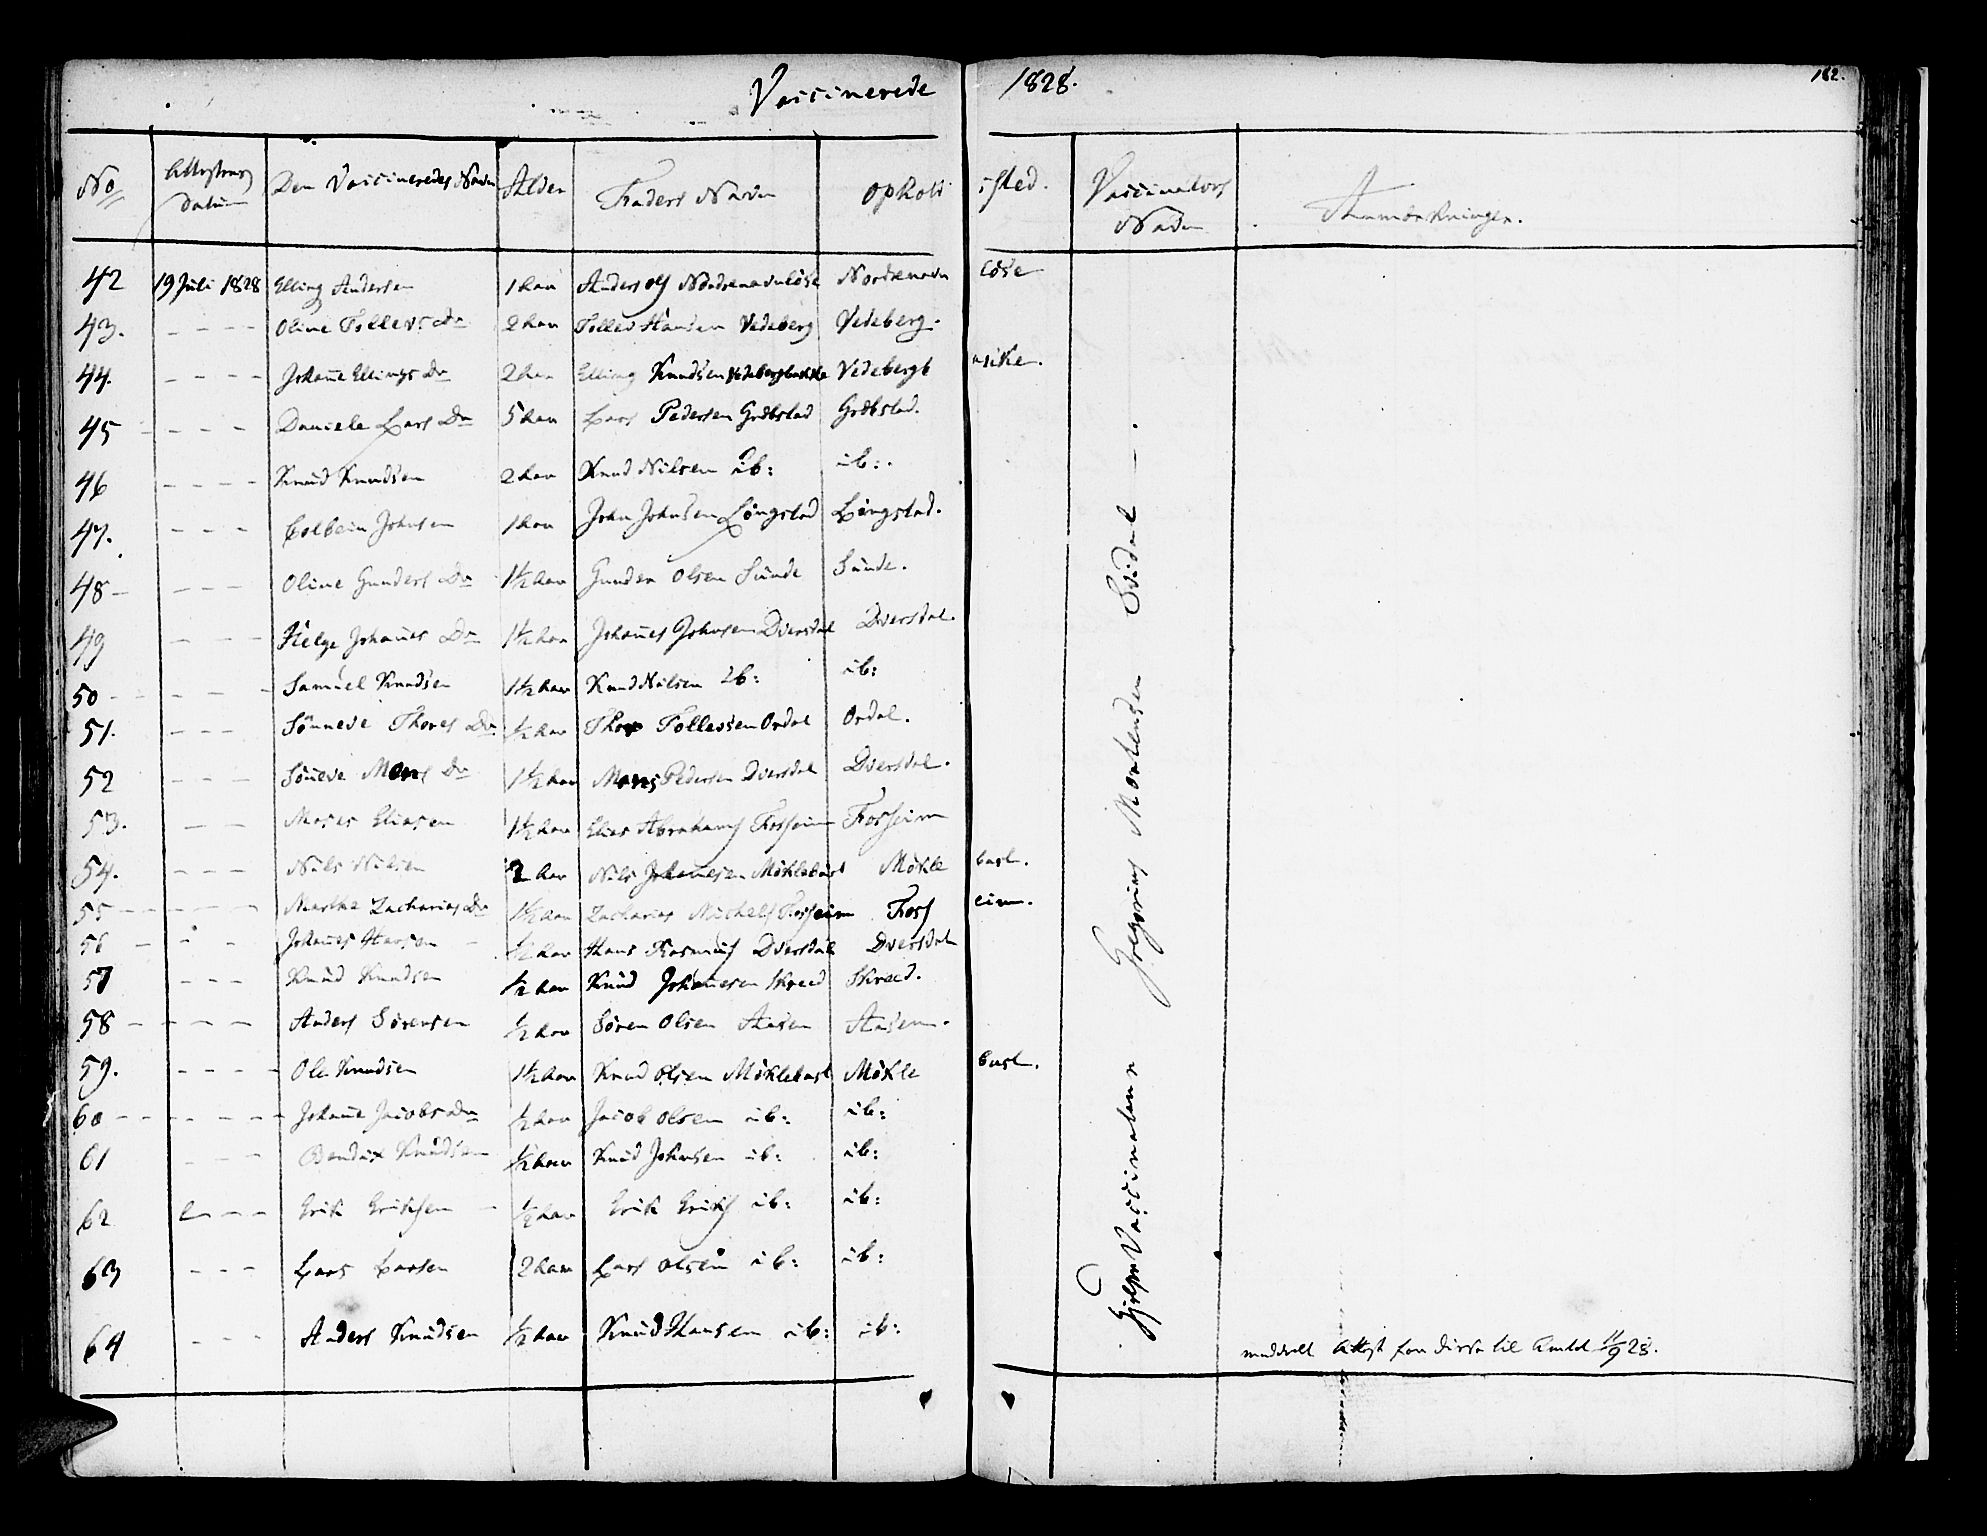 Vaccinerede 1828.
182.
No Attestens Datum Den Vaccineredes Navn Alder Faders Navn Opholdsted. Vaccinators Navn Anmærkninger.
42 19 Juli 1828 Elling Andersen 1 Aar Anders Ols Nordrenavnløse Nordrenavnløse
43. - - - - Oline Tollevs Dr 2 Aar Tollev Hansen Vedeberg Vedeberg.
44. - - - - Johane Ellings Dr 2 Aar Elling Knudsen Vedebergbakke Vedebergbakke.
45 - - - - Daniele Lars Dr 5 Aar Lars Pedersen Grøbstad Grøbstad.
46 - - - - Knud Knudsen 2 Aar Knud Nilsen ib: ib:.
47. - - - Colbein Johnsen 1 Aar John Johnsen Løngstad Løngstad.
48 - - - - Oline Gunders Dr 1½ Aar Gunder Olsen Sunde Sunde.
49 - - - Helge Johanes Dr 1½ Aar Johanes Johnsen Dversdal Dversdal.
50 - - - - Samuel Knudsen 1½ Aar Knud Nilsen ib: ib:
51. - - - Sønneve Thores Dr ½ Aar Thor Tollevsen Ordal Ordal.
52 - - - Søneve Mons Dr 1½ Aar Mons Pedersen Dversdal Dversdal.
53. - - Moses Eliasen 1½ Aar Elias Abrahams Forseim Forseim
54. - - - Nils Nilsen 2 Aar Nils Johanesen Møklebust Møklebust.
55 - - - - Marthe Zacharias Dr 1½ Aar Zacharias Michels Forseim Forseim.
56 - - - Johanes Hansen - ½ Aar Hans Rasmus Dversdal Dversdal
57 - - - Knud Knudsen ½ Aar Knud Johanesen Skreed Skreed.
58 - - - - Anders Sørensen ½ Aar Søren Olsen Aasen Aasen.
59. - - - - Ole Knudsen 1½ Aar Knud Olsen Møklebust Møklebust.
60 - - - - - Johane Jacobs Dr ½ Aar Jacob Olsen ib: ib:
61 - - - Bendix Knudsen ½ Aar Knud Johnsen ib: ib:
62 - - - Erik Eriksen - ½ Aar Erik Eriks ib: ib:
63 - - - Lars Larsen 2 Aar Lars Olsen ib: ib:
64 - - - Anders Knudsen ½ Aar Knud Hansen ib: ib:
Hjelpe Vaccinateur Gregorius Mortensen
meddelt Attest for disse til Amtet 11/9 28.